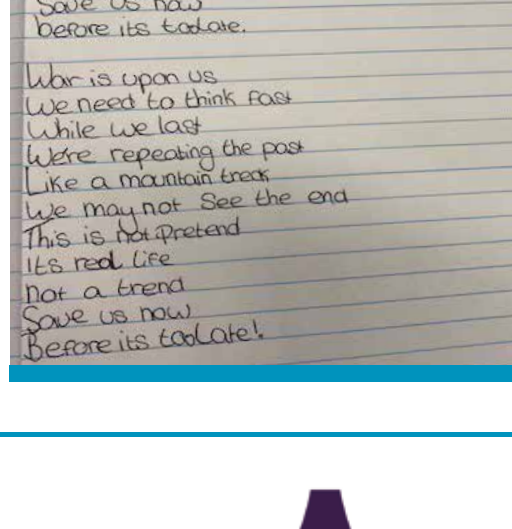 Save us now
before its toolate.
War is upon us
We need to think fast
While we last
Were repeating the past
Like a mountain treck
We may not See the end
This is not pretend
Its real life
not a trend
Save us now
Before its toolate!